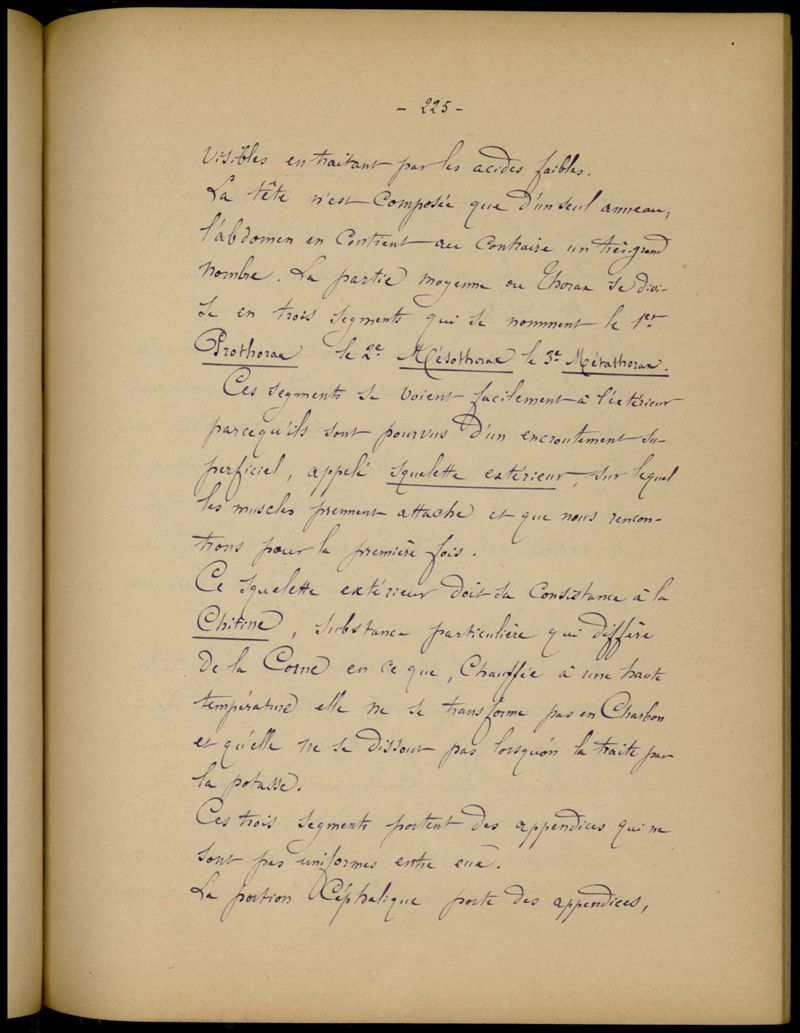 - 225 -
visibles en traitant par les acides faibles.
La tête n'est Composée que d'un seul anneau;
l'abdomen en Contient au Contraire un très-grand
nombre. La partie moyenne ou thorax se divi-
se en trois segments qui se nomment le 1er
Prothorax le 2e Mésothorax le 3e Métathorax.
Ces segments se voient facilement à l'extérieur
parcequ'ils sont pourvus d'un encroutement su-
perficiel, appelé squelette extérieur, sur lequel
les muscles prennent attache et que nous rencon-
trons pour la première fois.
Ce squelette extérieur doit sa Consistance à la
Chitine, substance particulière qui diffère
de la Corne en ce que, Chauffée à une haute
température elle ne se transforme pas en Charbon
et qu'elle ne se dissout pas lorsqu'on la traite par
la potasse.
Ces trois segments portent des appendices qui ne
sont pas uniformes entre eux.
La portion Céphalique porte des appendices,